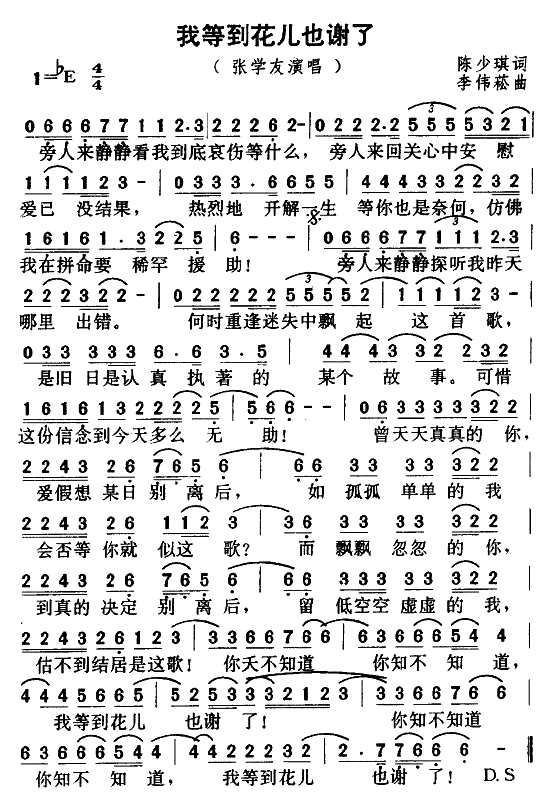 我等到花儿也谢了
（张学友演唱）
陈少琪词
1=♭E 4/4
李伟菘曲
0 6 6 6 7 7 1 1 2·3 | 2 2 2 6 2 - | 0 2 2 2 2·5 5 5 5 5 3 2 1 |
旁人来静静看我到底哀伤等什么，旁人来回关心中安慰
1 1 1 1 2 3 - | 0 3 3 3·6 6 5 5 | 4 4 4 3 3 2 2 3 2 |
爱已没结果，热烈地开解一生等你也是奈何，仿佛
1 6 1 6 1·3 2 2 5 | 6 - - - | 0 6 6 6 7 7 1 1 1 2·3 |
我在拼命要稀罕援助！旁人来静静探听我昨天
2 2 2 3 2 2 - | 0 2 2 2 2 2 5 5 5 5 5 | 1 1 1 1 2 3 |
哪里出错。何时重逢迷失中飘起这首歌，
0 3 3 3 3 3 6·6 3·5 | 4 4 4 3 2 2 3 2 |
是旧日是认真执著的某个故事。可惜
1 6 1 6 1 3 2 2 2 5 | 5 6 6 - - | 0 6 3 3 3 3 3 2 2 |
这份信念到今天多么无助！曾天天真真的你，
2 2 4 3 2 6 7 6 5 6 | 6 6 3 3 3 3 3 2 2 |
爱假想某日别离后，如孤孤单单的我
2 2 4 3 2 6 1 1 2 3 | 3 3 3 3 3 3 3 2 2 |
会否等你就似这歌？而飘飘忽忽的你，
2 2 4 3 2 6 7 6 5 6 | 3 3 3 3 3 3 3 2 2 |
到真的决定别离后，留低空空虚虚的我，
2 2 4 3 2 6 1 2 3 | 3 3 6 6 7 6 6 | 6 3 6 6 6 5 4 4 |
估不到结居是这歌！你天不知道你知不知道，
4 4 4 5 6 6 5 | 5 2 5 3 3 3 2 1 2 3 | 3 3 3 6 6 7 6 6 |
我等到花儿也谢了！你知不知道
6 3 6 6 6 5 4 4 | 4 2 2 2 2 3 2 | 2·7 7 6 6 6 - |
你知不知道，我等到花儿也谢了！ D.S